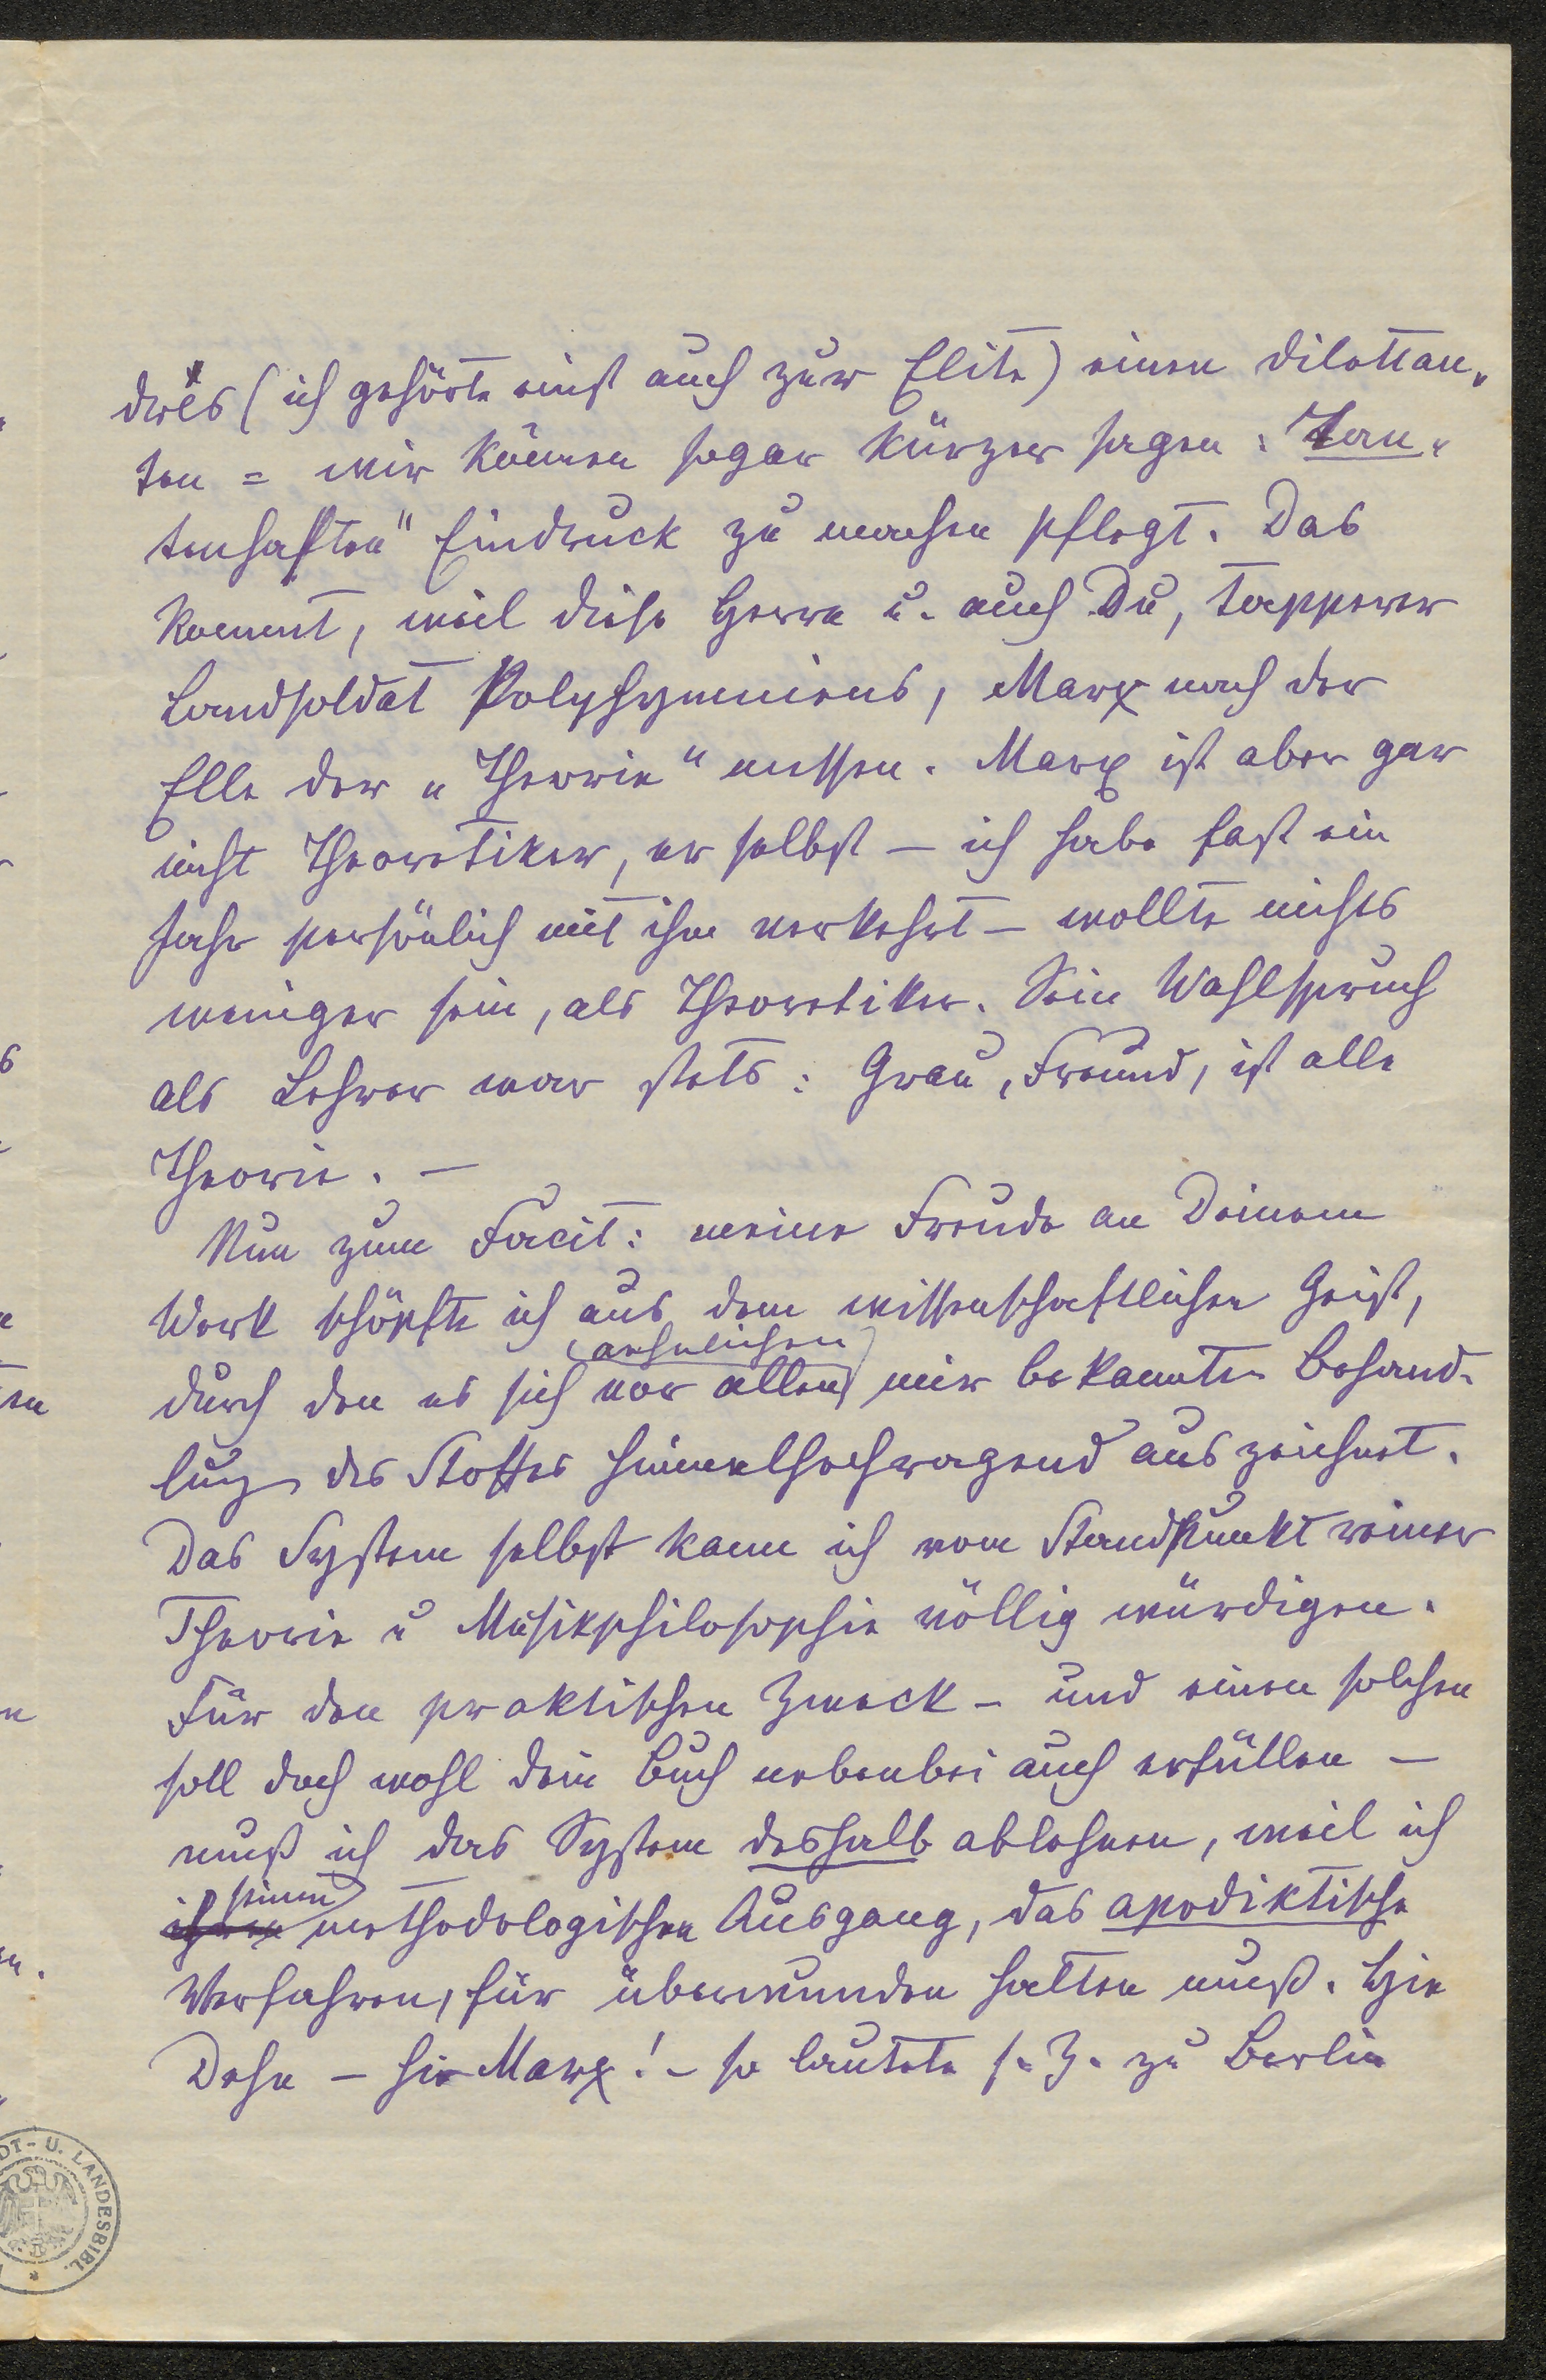 drés (ich gehörte einst auch zur Elite) einen dilettan„
ten = wir können sogar kürzer sagen: „tan„
tenhaften" Eindruck zu machen pflegt. Das
kommt, weil diese Herrn u. auch Du, tapperer
Landsoldat Polyhymniens, Marx nach der
Elle der „Theorie" messen. Marx ist aber gar
nicht Theoretiker, er selbst — ich habe fast ein
Jahr persönlich mit ihm verkehrt — wollte nichts
weniger sein, als Theoretiker. Sein Wahlspruch
als Lehrer war stets: Grau, Freund, ist alle
Theorie. —
Nun zum Facit: meine Freude an Deinem
Werk schöpfte ich aus dem wissenschaftlichen Geist,
aehnlichen
durch den es sich vor allen mir bekannten Behand-
lung des Stoffes himmelhochragend auszeichnet.
Das System selbst kann ich vom Standpunkt reiner
Theorie u Musikphilosophie völlig würdigen.
Für den praktischen Zweck — und einen solchen
soll doch wohl dein Buch nebenbei auch erfüllen —
muß ich das System deshalb ablehnen, weil ich
seinen
methodologischen Ausgang, das apodiktische
Verfahren, für überwunden halten muß. Hie
Dehn — hie Marx! — so lautete s. Z. zu Berlin
DT- U. LANDESBIBL.